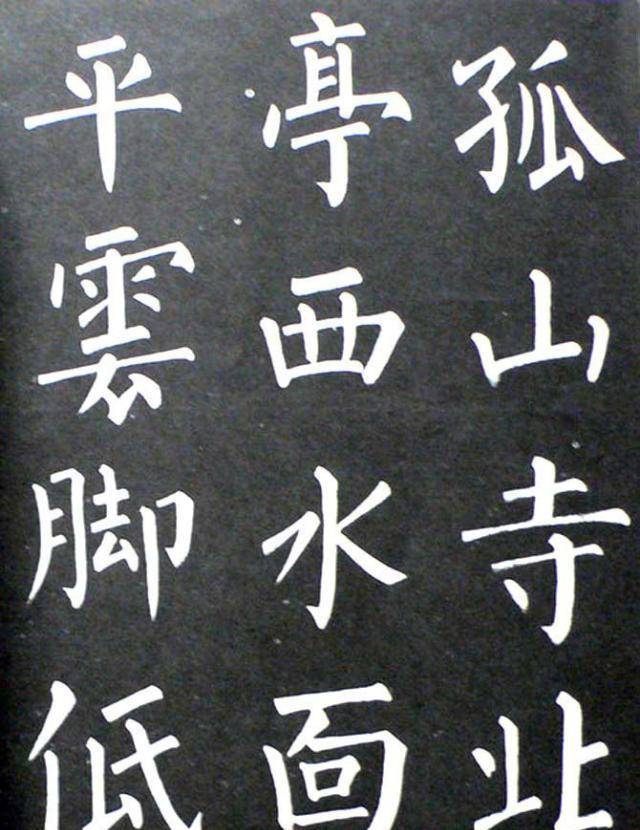 孤山寺北
亭西水面
平雲脚低